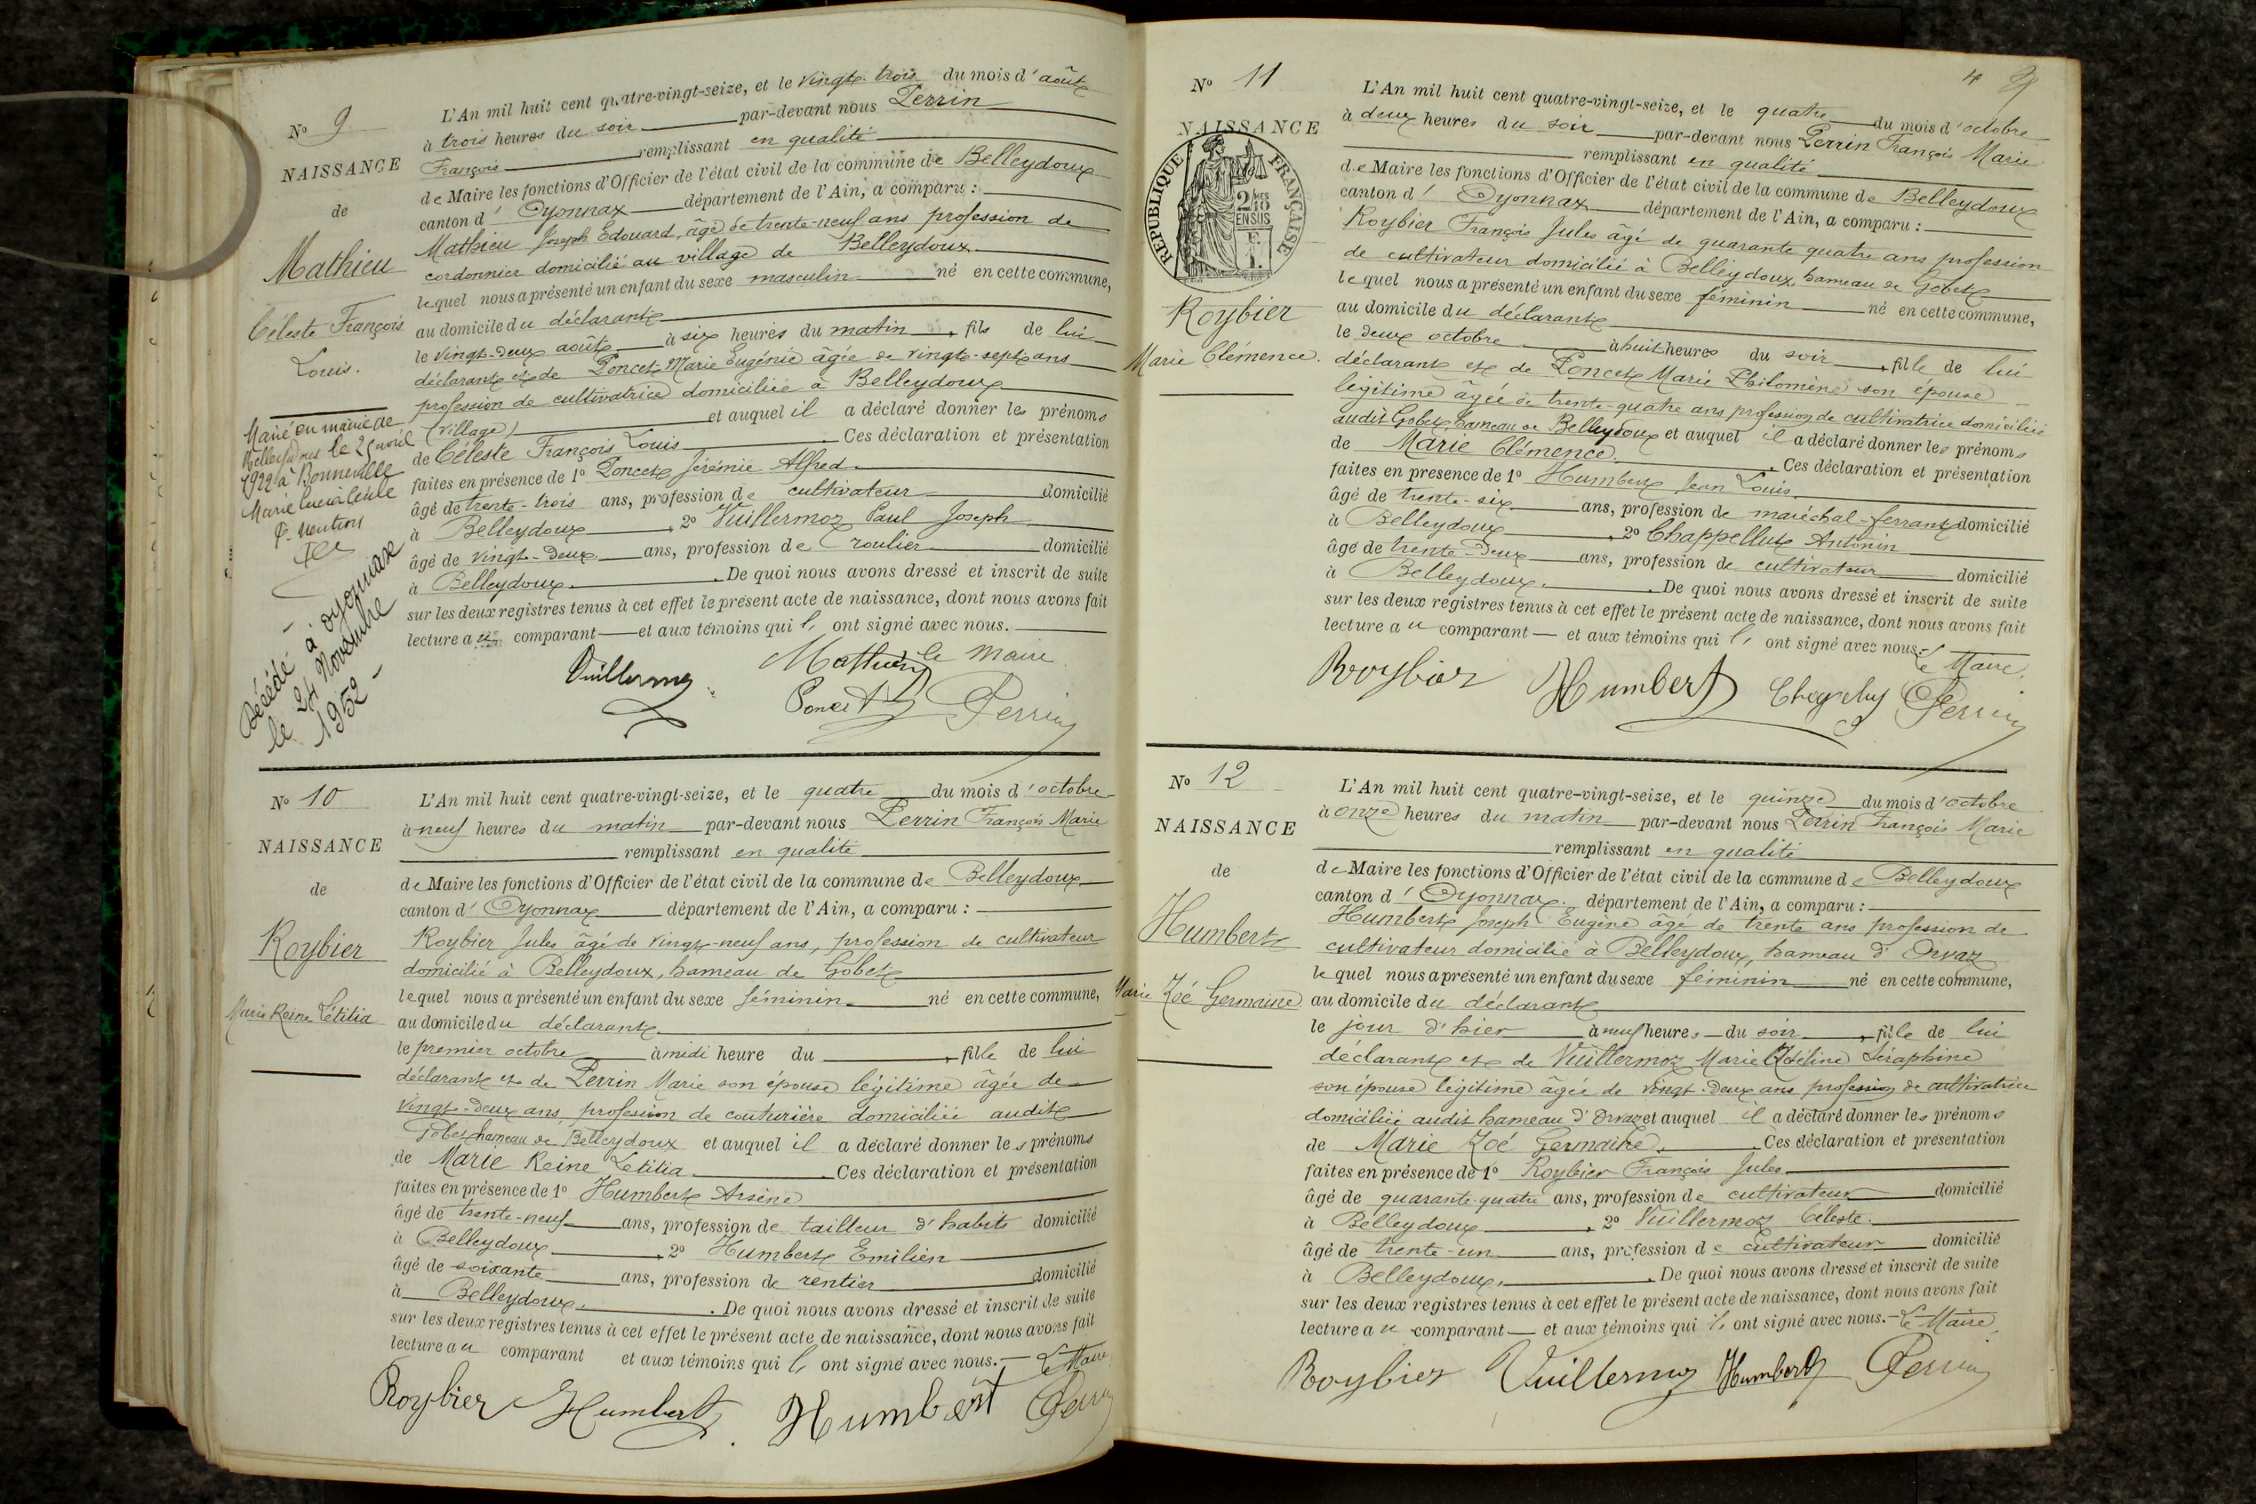 No 9
NAISSANCE
de
Mathieu
Céleste François
Louis.
Marié en mairie de
Belleydoux le 25 avril
1922 à Bonneville
Marie
Pr mention
Décédé à Oyonnax
le 24 Novembre
1952
L'An mil huit cent quatre-vingt-seize, et le vingt-trois du mois d'août
à trois heures du soir par-devant nous Perrin
François remplissant en qualité
de Maire les fonctions d'Officier de l'état civil de la commune de Belleydoux
canton d'Oyonnax département de l'Ain, a comparu :
Mathieu Joseph Edouard, âgé de trente-neuf ans profession de
cordonnier domicilié au village de Belleydoux
lequel nous a présenté un enfant du sexe masculin né en cette commune,
au domicile du déclarant
le vingt-deux août à six heures du matin, fils de lui
déclarant et de Poncet Marie Eugénie âgée de vingt-sept ans
profession de cultivatrice domiciliée à Belleydoux
(village) et auquel il a déclaré donner les prénoms
de Céleste François Louis. Ces déclaration et présentation
faites en présence de 1o Poncet Jérémie Alfred
âgé de trente-trois ans, profession de cultivateur domicilié
à Belleydoux, 2o Vuillermoz Paul Joseph
âgé de vingt-deux ans, profession de roulier domicilié
à Belleydoux. De quoi nous avons dressé et inscrit de suite
sur les deux registres tenus à cet effet le présent acte de naissance, dont nous avons fait
lecture au comparant et aux témoins qui l' ont signé avec nous.
le Maire
Vuillermoz Mathieu
Poncet Perrin
No 10
NAISSANCE
de
Roybier
Marie Reine Létitia
L'An mil huit cent quatre-vingt-seize, et le quatre du mois d'octobre
à neuf heures du matin par-devant nous Perrin François Marie
remplissant en qualité
de Maire les fonctions d'Officier de l'état civil de la commune de Belleydoux
canton d'Oyonnax département de l'Ain, a comparu :
Roybier Jules âgé de vingt-neuf ans, profession de cultivateur
domicilié à Belleydoux, hameau de Gobet
lequel nous a présenté un enfant du sexe féminin né en cette commune,
au domicile du déclarant
le premier octobre à midi heure du , fille de lui
déclarant et de Perrin Marie son épouse légitime âgée de
vingt-deux ans, profession de couturière domiciliée audit
Gobet hameau de Belleydoux et auquel il a déclaré donner les prénoms
de Marie Reine Letitia. Ces déclaration et présentation
faites en présence de 1o Humbert Arsène
âgé de trente-neuf ans, profession de tailleur d'habits domicilié
à Belleydoux, 2o Humbert Emilien
âgé de soixante ans, profession de rentier domicilié
à Belleydoux. De quoi nous avons dressé et inscrit de suite
sur les deux registres tenus à cet effet le présent acte de naissance, dont nous avons fait
lecture au comparant et aux témoins qui l' ont signé avec nous. Le Maire
Roybier Humbert Humbert Perrin
4
No 11
NAISSANCE
REPUBLIQUE FRANÇAISE
2/10 EN SUS
Roybier
Marie Clémence.
L'An mil huit cent quatre-vingt-seize, et le quatre du mois d'octobre
à deux heures du soir par-devant nous Perrin François Marie
remplissant en qualité
de Maire les fonctions d'Officier de l'état civil de la commune de Belleydoux
canton d'Oyonnax département de l'Ain, a comparu :
Roybier François Jules âgé de quarante quatre ans profession
de cultivateur domicilié à Belleydoux, hameau de Gobet
lequel nous a présenté un enfant du sexe féminin né en cette commune,
au domicile du déclarant
le deux octobre à huit heures du soir, fille de lui
déclarant et de Poncet Marie Philomène son épouse
légitime âgée de trente-quatre ans profession de cultivatrice domiciliée
audit Gobet, hameau de Belleydoux et auquel il a déclaré donner les prénoms
de Marie Clémence. Ces déclaration et présentation
faites en présence de 1o Humbert Jean Louis
âgé de trente-six ans, profession de maréchal-ferrant domicilié
à Belleydoux, 2o Chappellut Antonin
âgé de trente-deux ans, profession de cultivateur domicilié
à Belleydoux. De quoi nous avons dressé et inscrit de suite
sur les deux registres tenus à cet effet le présent acte de naissance, dont nous avons fait
lecture au comparant et aux témoins qui l' ont signé avec nous.
Le Maire,
Roybier Humbert Perrin
No 12
NAISSANCE
de
Humbert
Marie Zoé Germaine
L'An mil huit cent quatre-vingt-seize, et le quinze du mois d'octobre
à onze heures du matin par-devant nous Perrin François Marie
remplissant en qualité
de Maire les fonctions d'Officier de l'état civil de la commune de Belleydoux
canton d'Oyonnax. département de l'Ain, a comparu :
Humbert Joseph Eugène âgé de trente ans profession de
cultivateur domicilié à Belleydoux, hameau d'Orvaz
lequel nous a présenté un enfant du sexe féminin né en cette commune,
au domicile du déclarant
le jour d'hier à neuf heures du soir, fille de lui
déclarant et de Vuillermoz Marie Séraphine
son épouse légitime âgée de vingt-deux ans profession de cultivatrice
domiciliée audit hameau d'Orvaz et auquel il a déclaré donner les prénoms
de Marie Zoé Germaine. Ces déclaration et présentation
faites en présence de 1o Roybier François Jules
âgé de quarante-quatre ans, profession de cultivateur domicilié
à Belleydoux, 2o Vuillermoz Céleste
âgé de trente-un ans, profession de cultivateur domicilié
à Belleydoux. De quoi nous avons dressé et inscrit de suite
sur les deux registres tenus à cet effet le présent acte de naissance, dont nous avons fait
lecture au comparant et aux témoins qui l' ont signé avec nous. Le Maire,
Roybier Vuillermoz Humbert Perrin